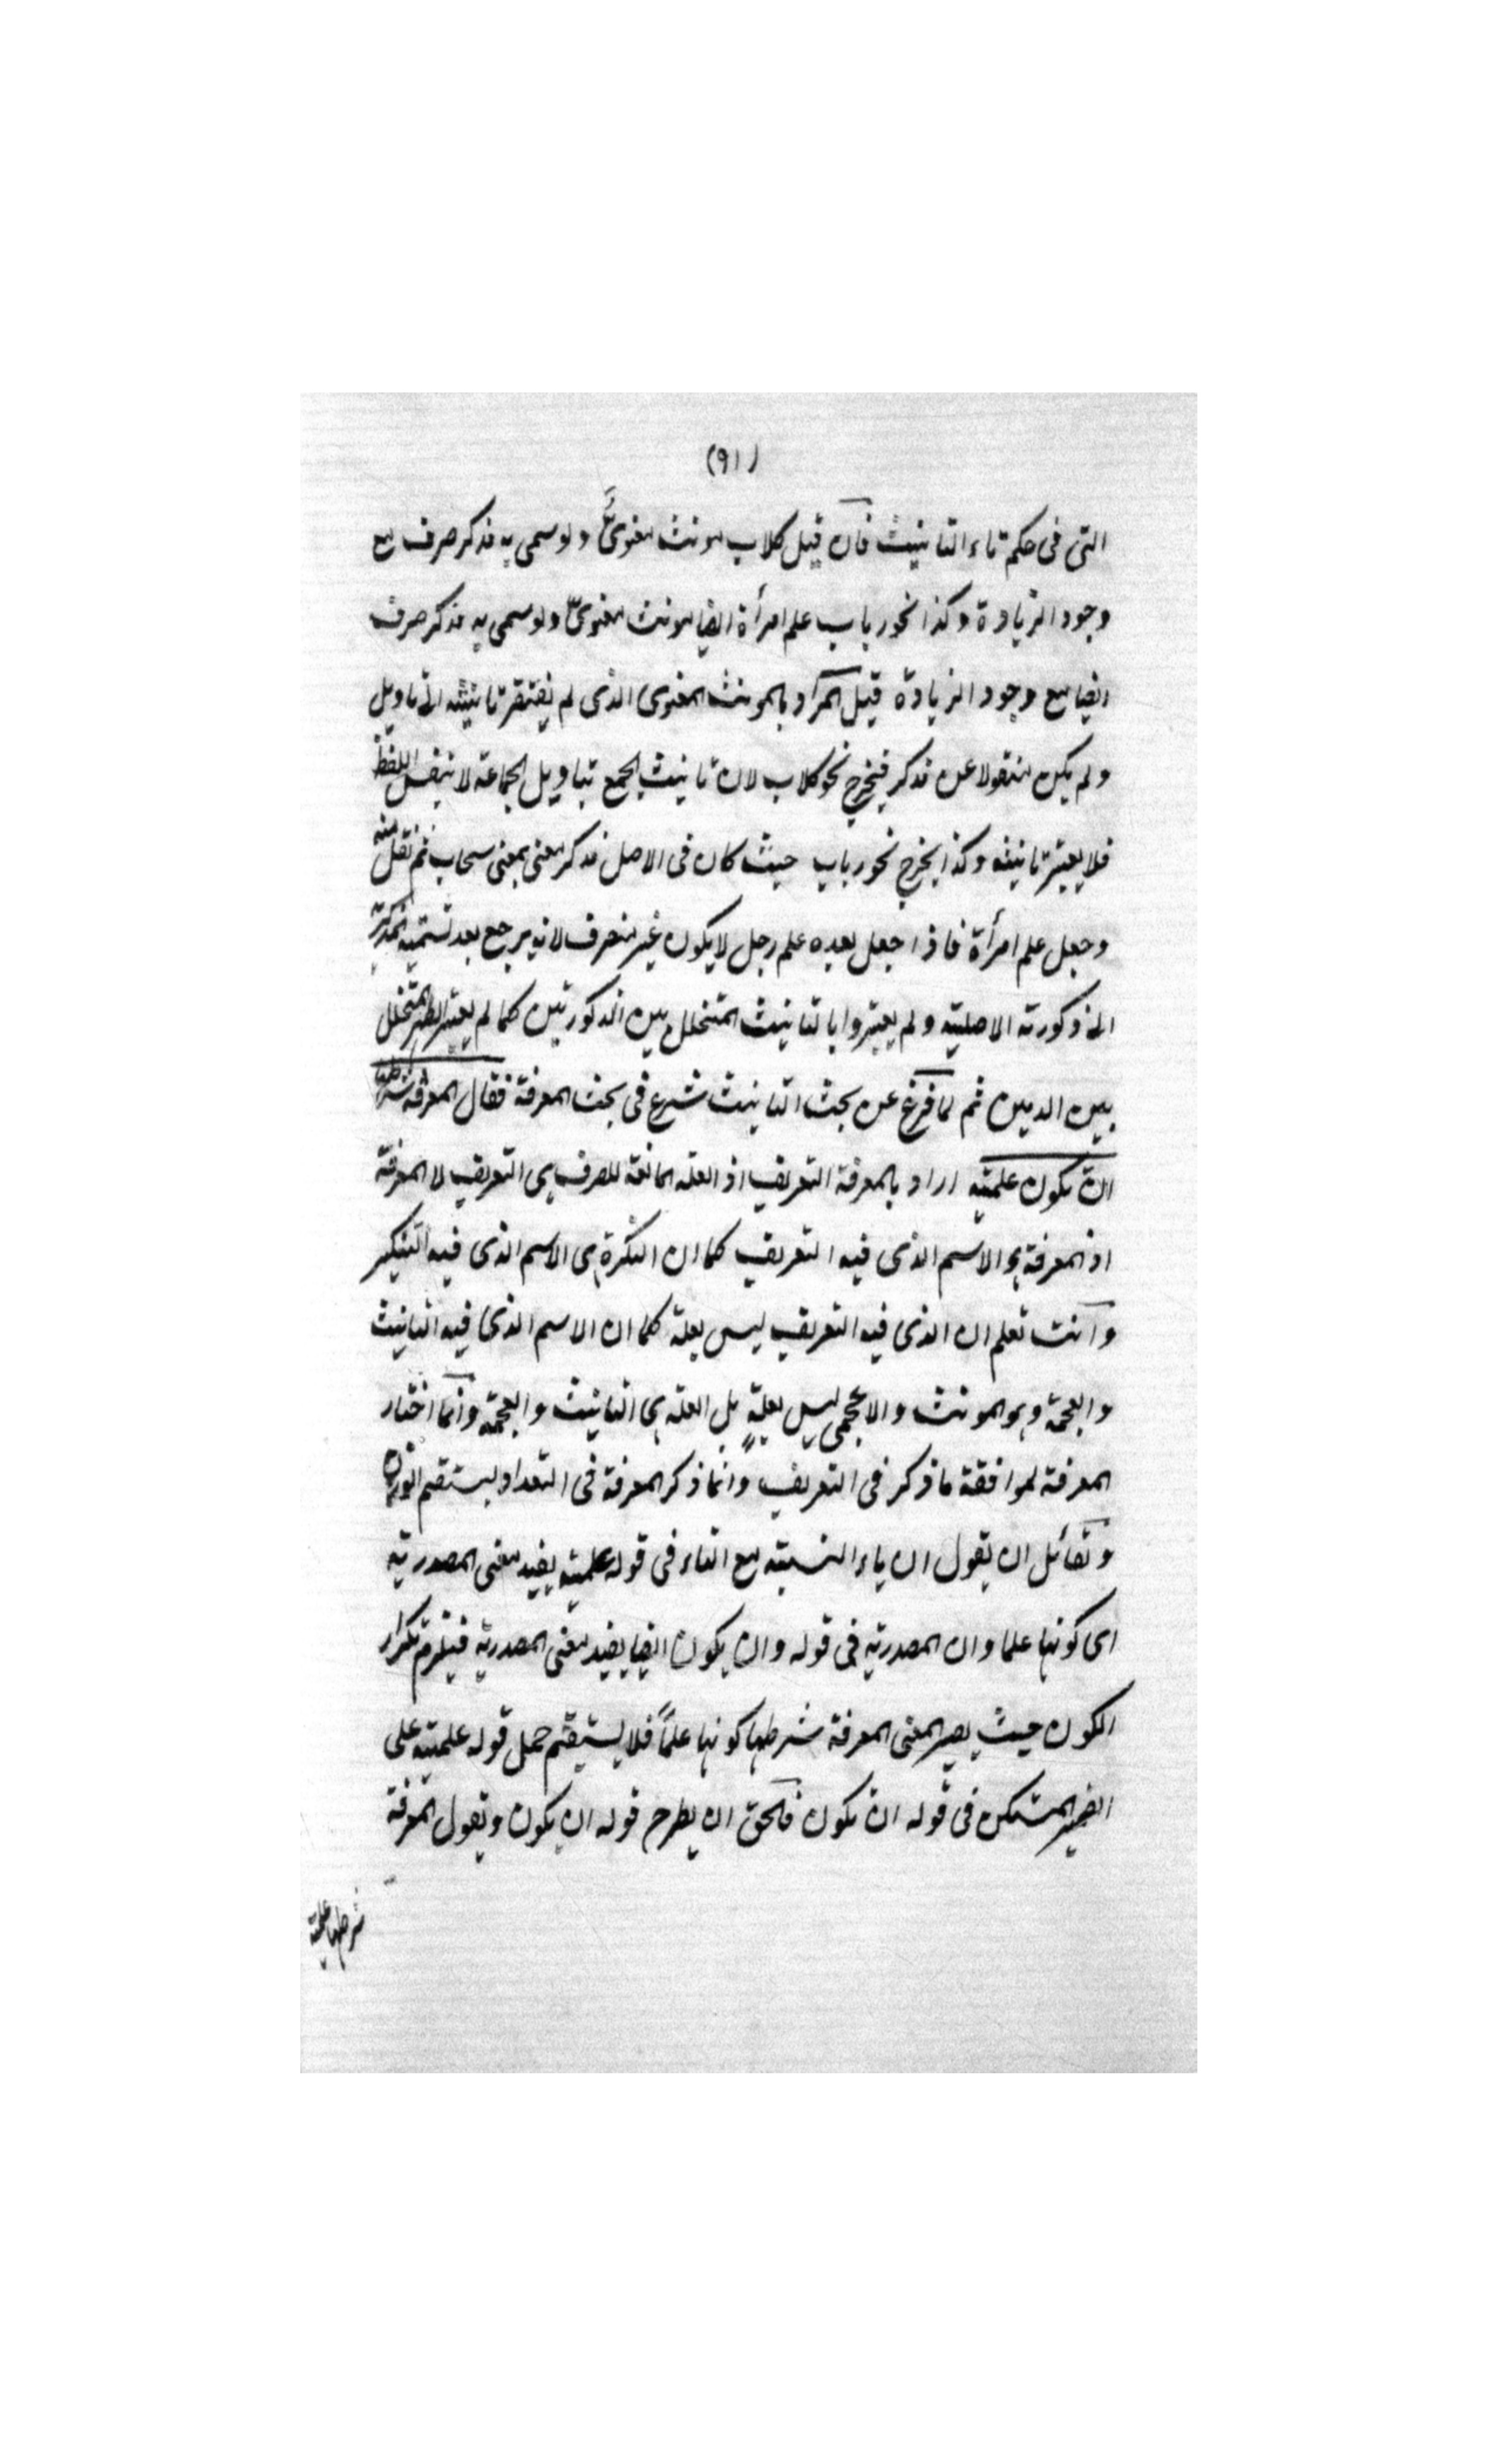 (٩١)
التى فى حكم تاء التانيث فان قيل كلاب مونث معنوىّ ولو سمى به مذكر صرف مع
وجود الزيادة وكذا نحو رباب علم امرأة ايضا مونث معنوىّ ولو سمى به مذكر صرف
ايضا مع وجود الزيادة قيل المراد بالمونث المعنوى الذى لم يفتقر تانيثه الى تاويل
ولم يكن منقولا عن مذكر فيخرج نحو كلاب لان تانيث الجمع بتاويل الجماعة لا بنفس اللفظ
فلا يعتبر تانيثه وكذا يخرج نحو رباب حيث كان فى الاصل مذكر معنى بمعنى سحاب ثم نقل منه
وجعل علم امرأة فاذا جعل بعده علم رجل لا يكون غير منصرف لانه يرجع بعد تسمية المذكر به
الى ذكورته الاصلية ولم يعتبروا بالتانيث المتخلل بين الذكورتين كما لم يعتبر الطهر المتخلل
بين الدمين ثم لما فرغ عن بحث التانيث شرع فى بحث المعرفة فقال المعرفة شرطها
ان تكون علمية اراد بالمعرفة التعريف اذ العلة المانعة للصرف هى التعريف لا المعرفة
اذ المعرفة هو الاسم الذى فيه التعريف كما ان النكرة هى الاسم الذى فيه التنكير
وانت تعلم ان الذى فيه التعريف ليس بعلة كما ان الاسم الذى فيه التانيث
والعجمة وهو المونث والاعجمى ليس بعلةٍ بل العلة هى التانيث والعجمة وانما اختار
المعرفة لموافقة ما ذكر فى التعريف وانما ذكر المعرفة فى التعداد ليستقيم الوزن
ولقائل ان يقول ان ياء النسبة مع التاء فى قوله علمية يفيد معنى المصدرية
اى كونها علما وان المصدرية فى قوله وان يكون ايضا يفيد معنى المصدرية فيلزم تكرار
الكون حيث يصير المعنى المعرفة شرطها كونها علماً فلا يستقيم حمل قوله علمية على
الضمير المستكن فى قوله ان تكون فالحق ان يطرح قوله ان يكون ويقول المعرفة
شرطها علمية